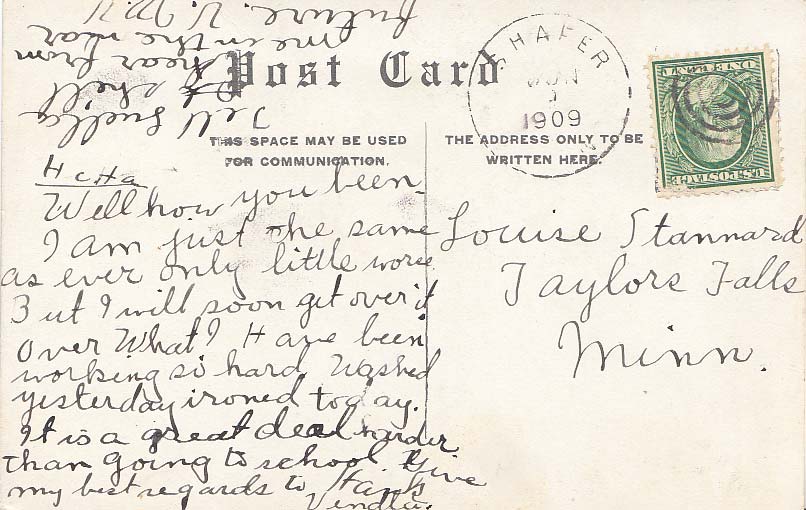 Post Card
SHAFER
JUN
1909
THIS SPACE MAY BE USED
FOR COMMUNICATION.
THE ADDRESS ONLY TO BE
WRITTEN HERE.
U.S. POSTAGE
ONE CENT
Well how you been
I am just the same
as ever only little worse
But I will soon get over it
over What? Have been
working so hard. Washed
yesterday ironed today.
It is a great deal harder
than going to school. Give
my best regards to
Tell Luella
I shall
hear from
me in the near
future.
Louise Stannard
Taylors Falls
Minn.